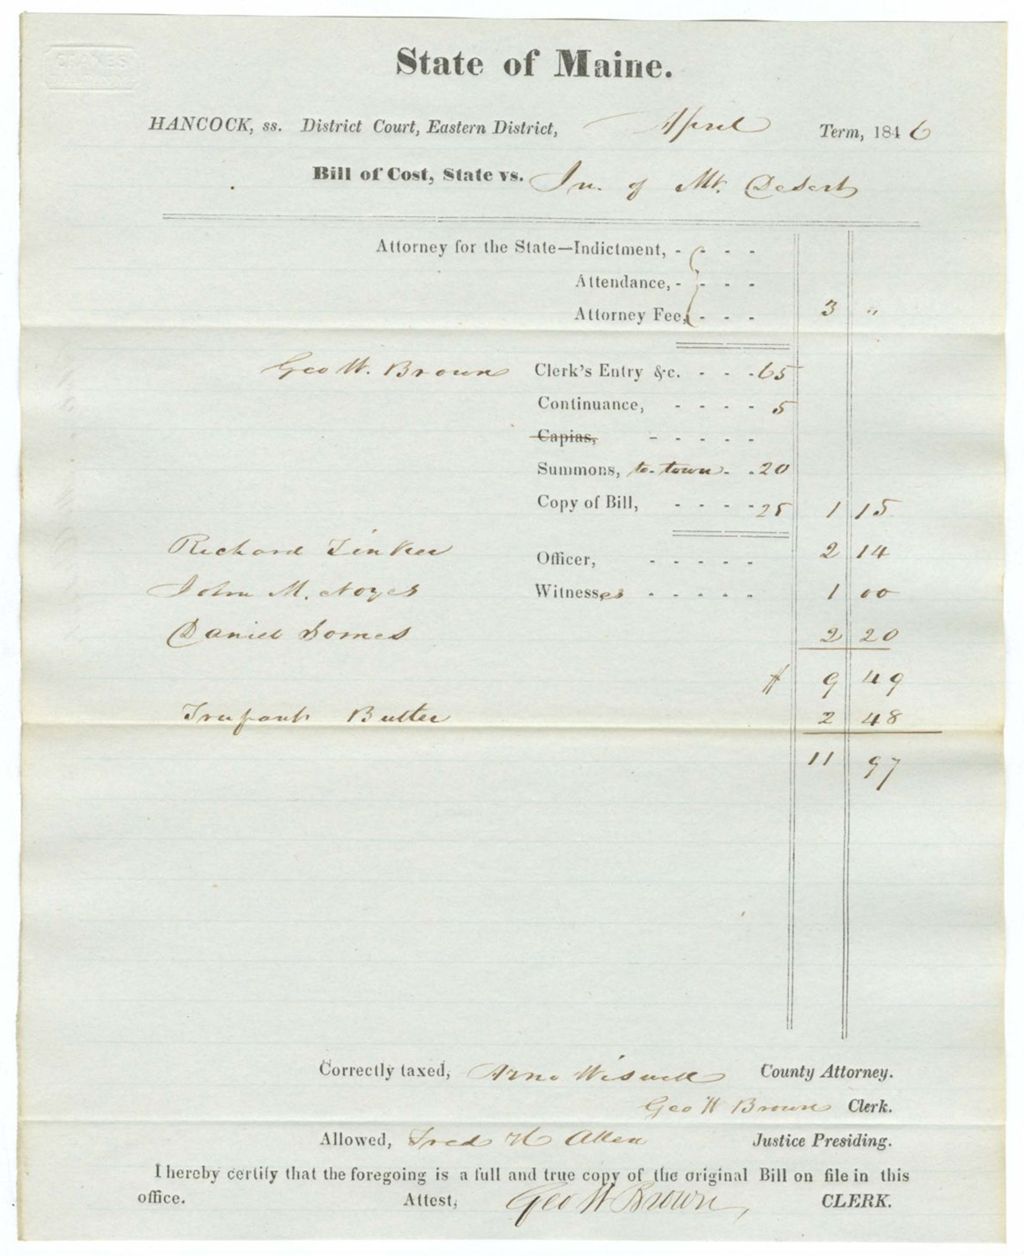 CRANES
State of Maine.
HANCOCK, ss. District Court, Eastern District, April Term, 1846
Bill of Cost, State vs. In. of Mt. Desert
Attorney for the State—Indictment, - - - -
Attendance, - - - -
Attorney Fee, - - - 3 "
Geo W. Brown Clerk's Entry &c. - - - 65
Continuance, - - - - 5
Capias, - - - - -
Summons, to town - - 20
Copy of Bill, - - - - 25 1 15
Richard Tinker Officer, - - - - - 2 14
John M. Noyes Witnesses - - - - - 1 00
Daniel Somes 2 20
9 49
Butler 2 48
11 97
Correctly taxed, Arno Wiswell County Attorney.
Geo W Brown Clerk.
Allowed, Fred H Allen Justice Presiding.
I hereby certify that the foregoing is a full and true copy of the original Bill on file in this
office. Attest, Geo W Brown, CLERK.